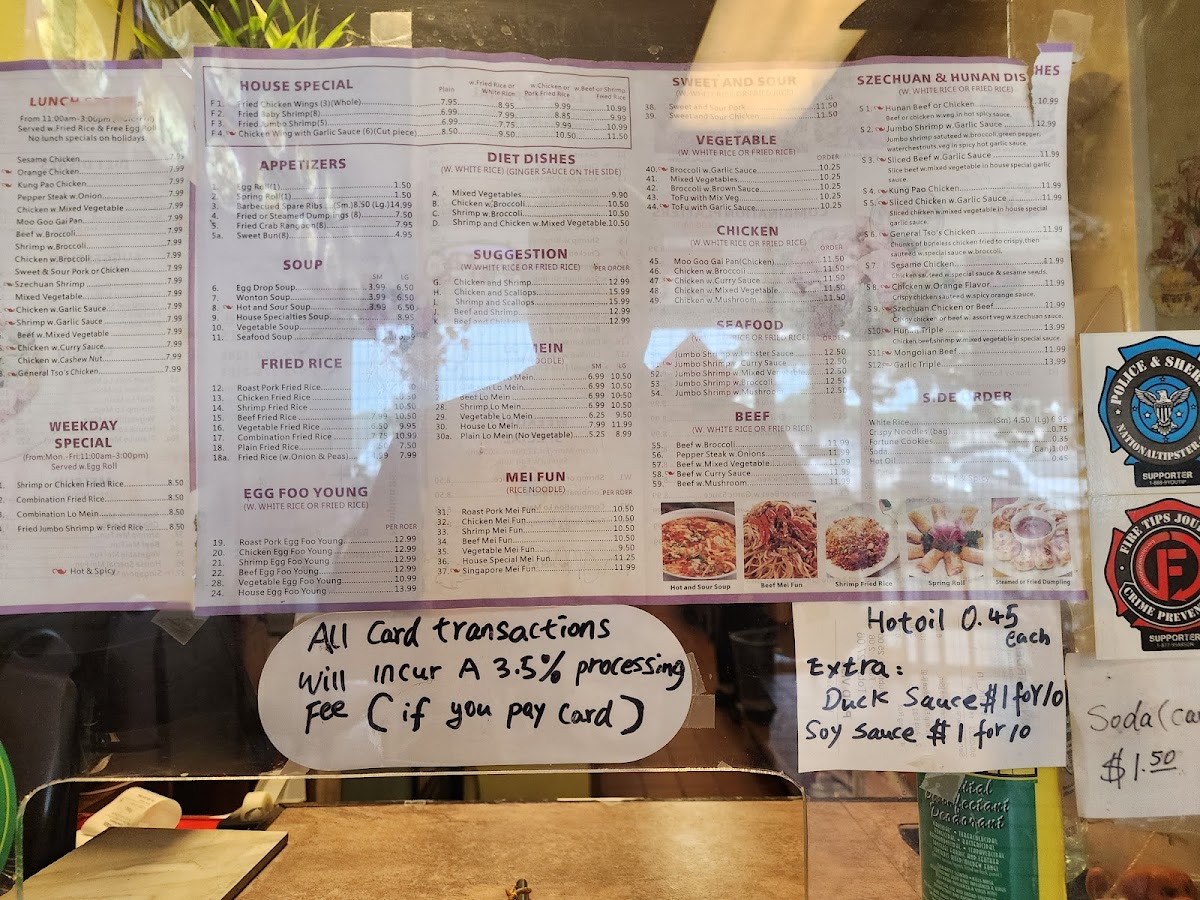 LUNCH
From 11:00am-3:00pm
Served w.Fried Rice & Free Egg Roll
No lunch specials on holidays
Sesame Chicken 7.99
Orange Chicken 7.99
Kung Pao Chicken 7.99
Pepper Steak w.Onion 7.99
Chicken w.Mixed Vegetable 7.99
Moo Goo Gai Pan 7.99
Beef w.Broccoli 7.99
Shrimp w.Broccoli 7.99
Chicken w.Broccoli 7.99
Sweet & Sour Pork or Chicken 7.99
Szechuan Shrimp 7.99
Mixed Vegetable 7.99
Chicken w.Garlic Sauce 7.99
Shrimp w.Garlic Sauce 7.99
Beef w.Mixed Vegetable 7.99
Chicken w.Curry Sauce 7.99
Chicken w.Cashew Nut 7.99
General Tso's Chicken 7.99
WEEKDAY
SPECIAL
(From:Mon.-Fri:11:00am-3:00pm)
Served w.Egg Roll
Shrimp or Chicken Fried Rice 8.50
Combination Fried Rice 8.50
Combination Lo Mein 8.50
Fried Jumbo Shrimp w. Fried Rice 8.50
Hot & Spicy
HOUSE SPECIAL
Plain w.Fried Rice or White Rice w.Chicken or Pork Fried Rice w.Beef or Shrimp Fried Rice
F1. Fried Chicken Wings (3)(Whole) 7.95 8.95 9.99 10.99
F2. Fried Baby Shrimp(8) 6.99 7.99 8.85 9.99
F3. Fried Jumbo Shrimp(5) 6.99 7.75 9.99 10.99
F4. Chicken Wing with Garlic Sauce (6)(Cut piece) 8.50 9.50 10.50 11.50
APPETIZERS
1. Egg Roll(1) 1.50
2. Spring Roll(1) 1.50
3. Barbecued Spare Ribs (Sm.)8.50 (Lg)14.99
4. Fried or Steamed Dumplings (8) 7.50
5. Fried Crab Rangoon(8) 7.95
5a. Sweet Bun(8) 4.95
SOUP
SM LG
6. Egg Drop Soup 3.99 6.50
7. Wonton Soup 3.99 6.50
8. Hot and Sour Soup 3.99 6.50
9. House Specialties Soup 8.95
10. Vegetable Soup
11. Seafood Soup
FRIED RICE
12. Roast Pork Fried Rice
13. Chicken Fried Rice
14. Shrimp Fried Rice 10.50
15. Beef Fried Rice 7.99 10.50
16. Vegetable Fried Rice 6.50 9.95
17. Combination Fried Rice 7.75 10.99
18. Plain Fried Rice 7.50
18a. Fried Rice (w.Onion & Peas) 7.99
EGG FOO YOUNG
(W. WHITE RICE OR FRIED RICE)
PER ROER
19. Roast Pork Egg Foo Young 12.99
20. Chicken Egg Foo Young 12.99
21. Shrimp Egg Foo Young 12.99
22. Beef Egg Foo Young 12.99
28. Vegetable Egg Foo Young 10.99
24. House Egg Foo Young 13.99
DIET DISHES
(W. WHITE RICE) (GINGER SAUCE ON THE SIDE)
A. Mixed Vegetables 9.90
B. Chicken w.Broccoli 10.50
C. Shrimp w.Broccoli 10.50
D. Shrimp and Chicken w.Mixed Vegetable 10.50
SUGGESTION
(W.WHITE RICE OR FRIED RICE)
PER ORDER
G. Chicken and Shrimp 12.99
H. Chicken and Scallops 15.99
I. Shrimp and Scallops 15.99
J. Beef and Shrimp 12.99
K. Beef and Chicken 12.99
MEIN
SM LG
Lo Mein 6.99 10.50
Lo Mein 6.99 10.50
Beef Lo Mein 6.99 10.50
28. Shrimp Lo Mein 6.99 10.50
29. Vegetable Lo Mein 6.25 9.50
30. House Lo Mein 7.99 11.99
30a. Plain Lo Mein (No Vegetable) 5.25 8.99
MEI FUN
(RICE NOODLE)
PER ROER
31. Roast Pork Mei Fun 10.50
32. Chicken Mei Fun 10.50
33. Shrimp Mei Fun 10.50
34. Beef Mei Fun 10.50
35. Vegetable Mei Fun 9.50
36. House Special Mei Fun 11.25
37. Singapore Mei Fun 11.99
SWEET AND SOUR
38. Sweet and Sour Pork 11.50
39. Sweet and Sour Chicken 11.50
VEGETABLE
(W. WHITE RICE OR FRIED RICE)
ORDER
40. Broccoli w.Garlic Sauce 10.25
41. Mixed Vegetables 10.25
42. Broccoli w.Brown Sauce 10.25
43. ToFu with Mix Veg 10.25
44. ToFu with Garlic Sauce 10.25
CHICKEN
(W. WHITE RICE OR FRIED RICE)
ORDER
45. Moo Goo Gai Pan(Chicken) 11.50
46. Chicken w.Broccoli 11.50
47. Chicken w.Curry Sauce 11.50
48. Chicken w.Mixed Vegetable 11.50
49. Chicken w.Mushroom 11.50
SEAFOOD
(W. WHITE RICE OR FRIED RICE)
ORDER
Jumbo Shrimp w.Lobster Sauce 12.50
Jumbo Shrimp w.Curry Sauce 12.50
52. Jumbo Shrimp w.Mixed Vegetable 12.50
53. Jumbo Shrimp w.Broccoli 12.50
54. Jumbo Shrimp w.Mushroom 12.50
BEEF
(W. WHITE RICE OR FRIED RICE)
55. Beef w.Broccoli 11.99
56. Pepper Steak w.Onions 11.99
57. Beef w.Mixed Vegetable 12.99
58. Beef w.Curry Sauce 11.99
59. Beef w.Mushroom 11.99
SZECHUAN & HUNAN DISHES
(W. WHITE RICE OR FRIED RICE)
S 1. Hunan Beef or Chicken 10.99
Beef or chicken w.veg.in hot spicy sauce.
S 2. Jumbo Shrimp w.Garlic Sauce 12.99
Jumbo shrimp satuteed w.broccoli,green pepper,
waterchestnuts,veg in spicy hot garlic sauce.
S 3. Sliced Beef w.Garlic Sauce 11.99
Slice beef w.mixed vegetable in house special garlic
sauce.
S 4. Kung Pao Chicken 11.99
S 5. Sliced Chicken w.Garlic Sauce 11.99
Sliced chicken w.mixed vegetable in house special
garlic sauce.
S 6. General Tso's Chicken 11.99
Chunks of boneless chicken fried to crispy,then
sauteed w.special sauce w.broccoli.
S 7. Sesame Chicken 11.99
Chicken sauteed w.special sauce & sesame seeds.
S 8. Chicken w.Orange Flavor 11.99
Crispy chicken sauteed w.spicy orange sauce.
S 9. Szechuan Chicken or Beef 11.99
Crispy chicken or beef w. assort veg w.szechuan sauce.
S10. Hunan Triple 13.99
Chicken,beef,shrimp w.mixed vegetable in special sauce.
S11. Mongolian Beef 11.99
S12. Garlic Triple 13.99
SIDE ORDER
White Rice (Sm) 4.50 (Lg) 6.95
Crispy Noodles (bag) 0.75
Fortune Cookies 0.35
Soda (Can)1.00
Hot Oil 0.45
Hot and Sour Soup
Beef Mei Fun
Shrimp Fried Rice
Spring Roll
Steamed or Fried Dumpling
All Card transactions
Will incur A 3.5% processing
Fee (if you pay card)
Hotoil 0.45
each
Extra:
Duck Sauce $1 for 10
Soy Sauce $1 for 10
POLICE & SHER
NATIONALTIPSTER
SUPPORTER
FIRE TIPS JOU
CRIME PREVE
SUPPORTER
Soda (ca
$1.50
Deodorant